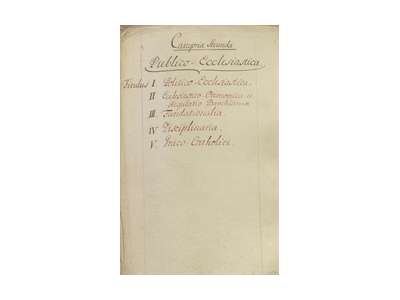 Categoria Secunda
Publico-Ecclesiastica
Titulus I Politico-Ecclesiastica
II Oeconomica
Regulatio Parochiarum
III. Fundationalia
IV Disciplinaria
V. Graeco-Catholica